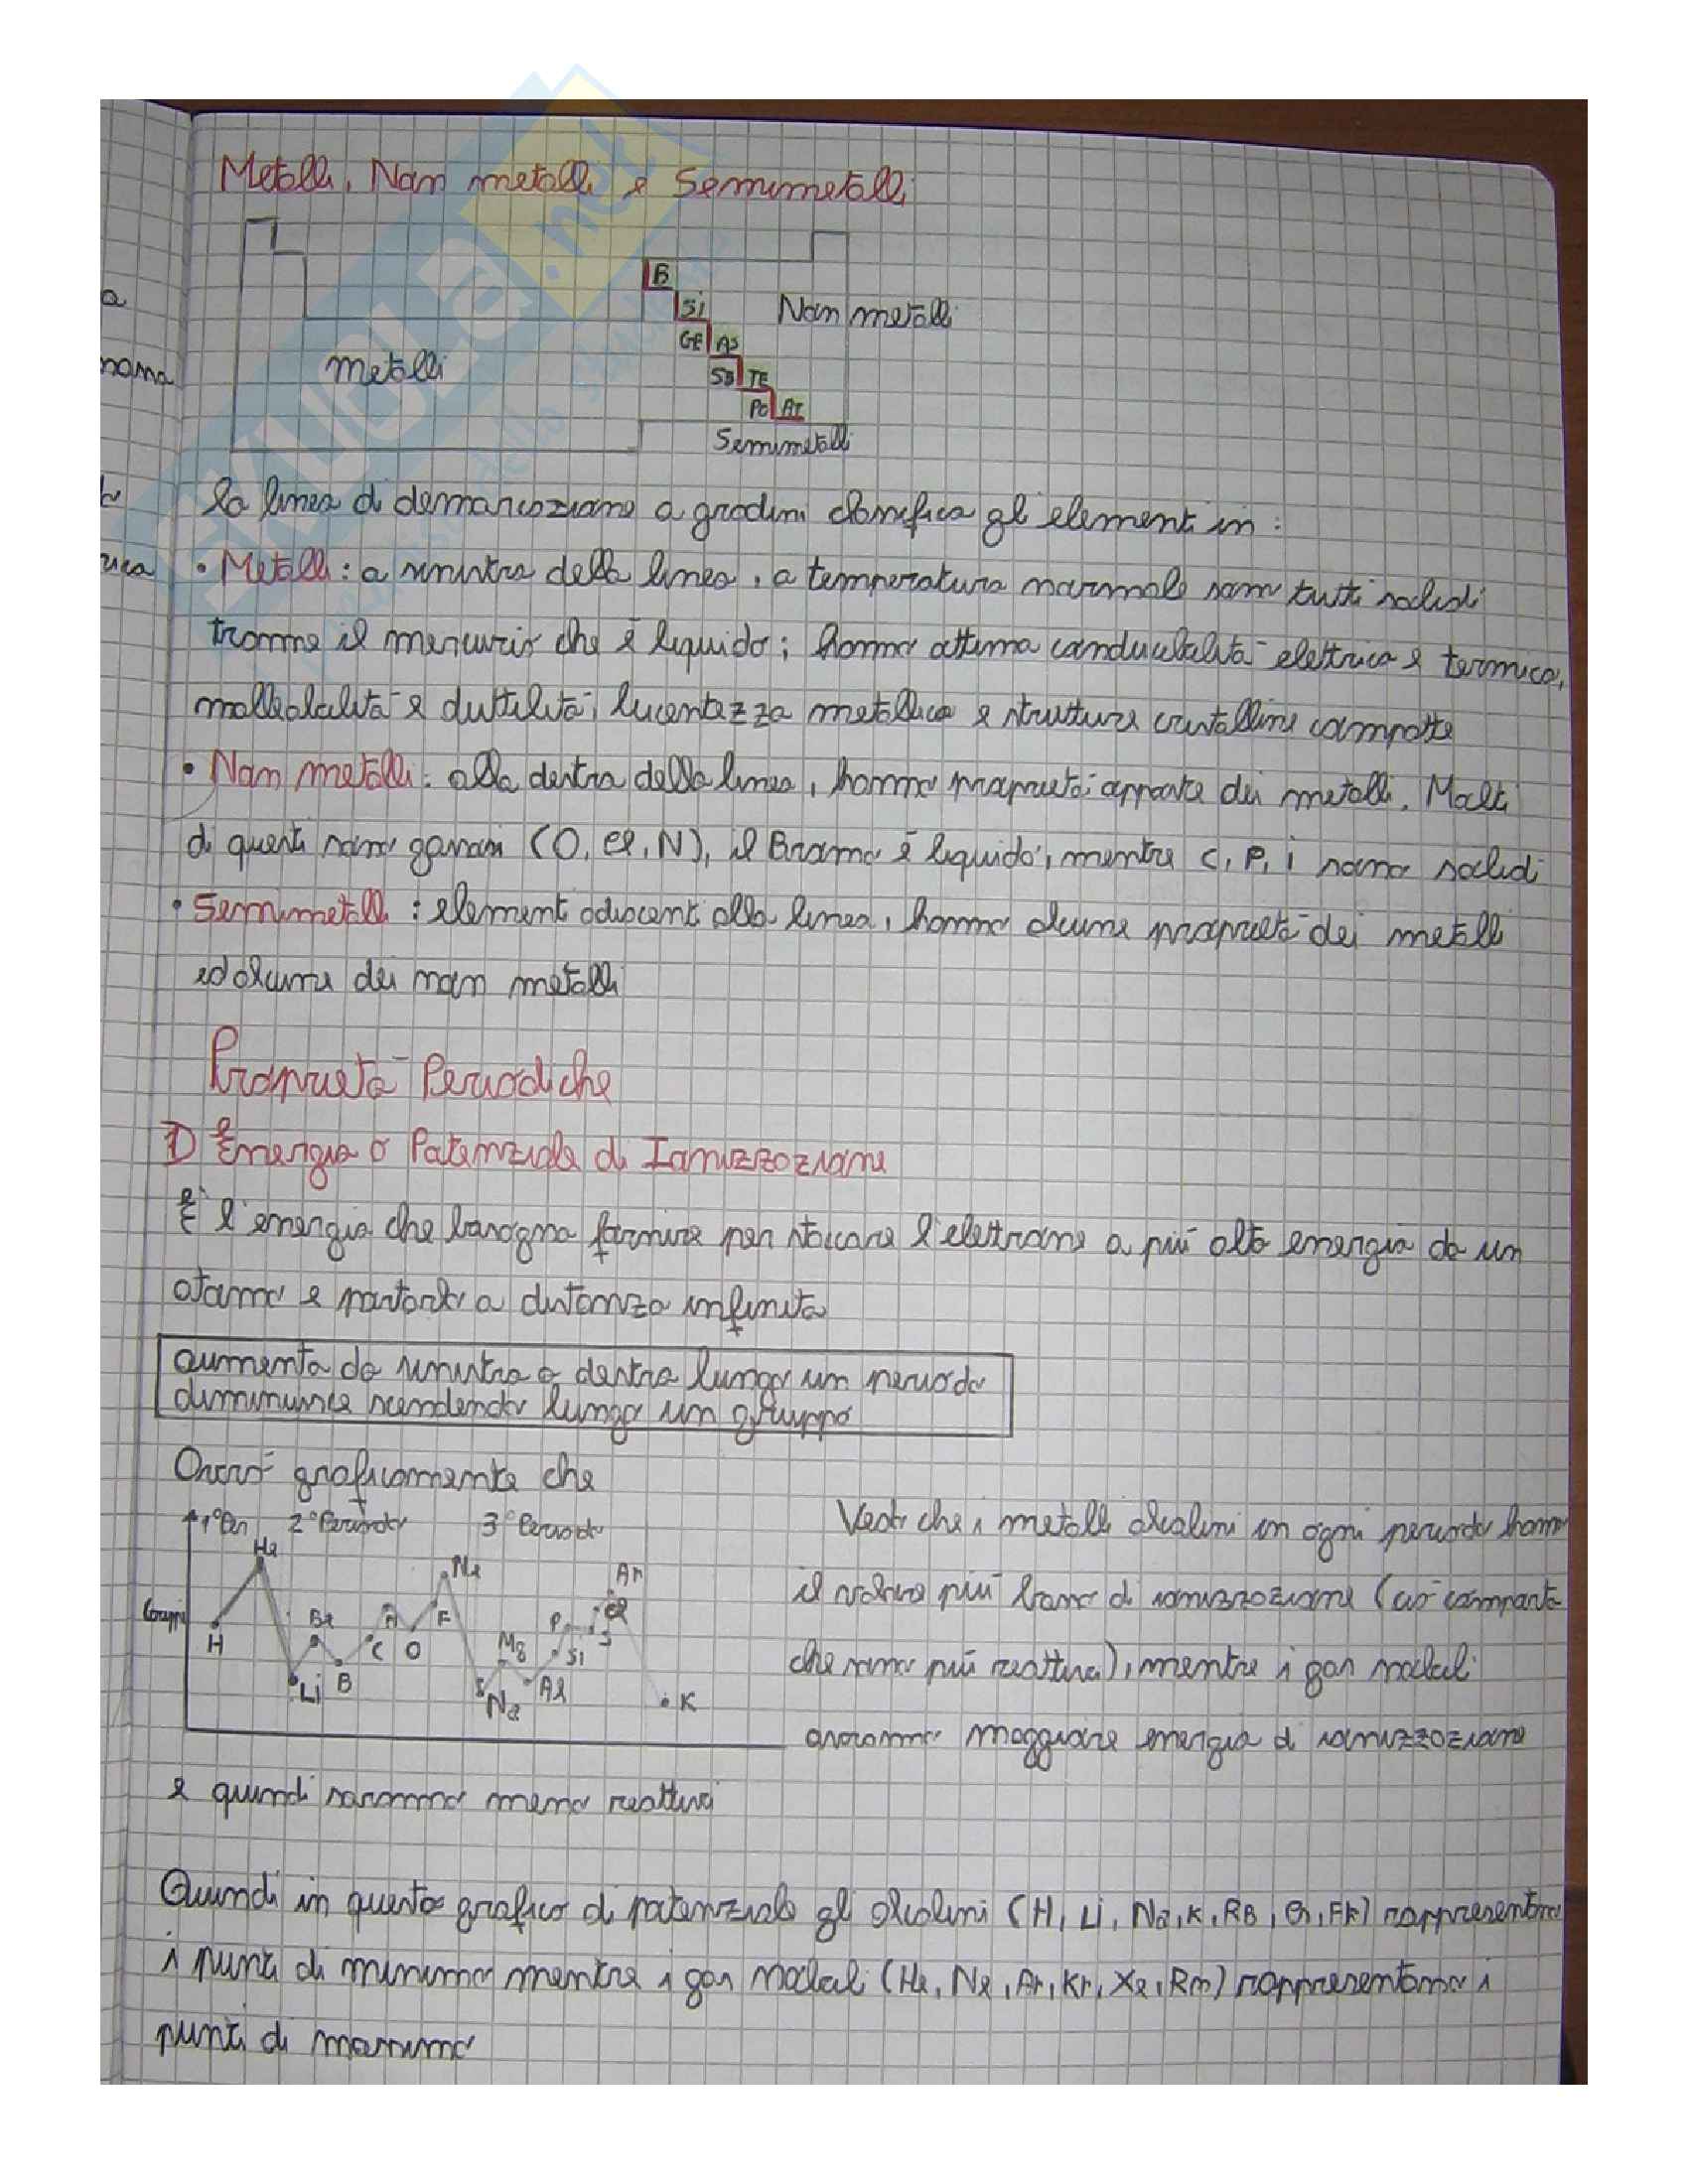 Metalli, Non metalli e Semimetalli
B
Si
Non metalli
Ge As
metalli
Sb TE
Po At
Semimetalli
a
nomo
rica
la linea di demarcazione a gradini classifica gli elementi in:
• Metalli: a sinistra della linea, a temperatura normale sono tutti solidi
tranne il mercurio che è liquido; hanno ottima conducibilità elettrica e termica,
malleabilità e duttilità, lucentezza metallica e strutture cristalline compatte
• Non metalli: alla destra della linea, hanno proprietà opposte dei metalli. Molti
di questi sono gassosi (O, Cl, N), il Bromo è liquido, mentre C, P, i sono solidi
• Semimetalli: elementi adiacenti alla linea, hanno alcune proprietà dei metalli
ed alcune dei non metalli
Proprietà Periodiche
1) Energia o Potenziale di Ionizzazione
È l'energia che bisogna fornire per staccare l'elettrone a più alta energia da un
atomo e portarlo a distanza infinita
aumenta da sinistra a destra lungo un periodo
diminuisce scendendo lungo un gruppo
Avrò graficamente che
1° Per 2° Periodo 3° Periodo
He
Ne
Ar
Gruppi
H
Be
N
F
P
Cl
C O
Mg
Si
S
Li B
Na
Al
K
Vedo che i metalli alcalini in ogni periodo hanno
il valore più basso di ionizzazione (ciò comporta
che sono più reattivi), mentre i gas nobili
avranno maggiore energia di ionizzazione
e quindi saranno meno reattivi
Quindi in questo grafico di potenziale gli alcalini (H, Li, Na, K, RB, Cs, FR) rappresentano
i punti di minimo mentre i gas nobili (He, Ne, Ar, Kr, Xe, Rn) rappresentano i
punti di massimo
SKUOLA.net